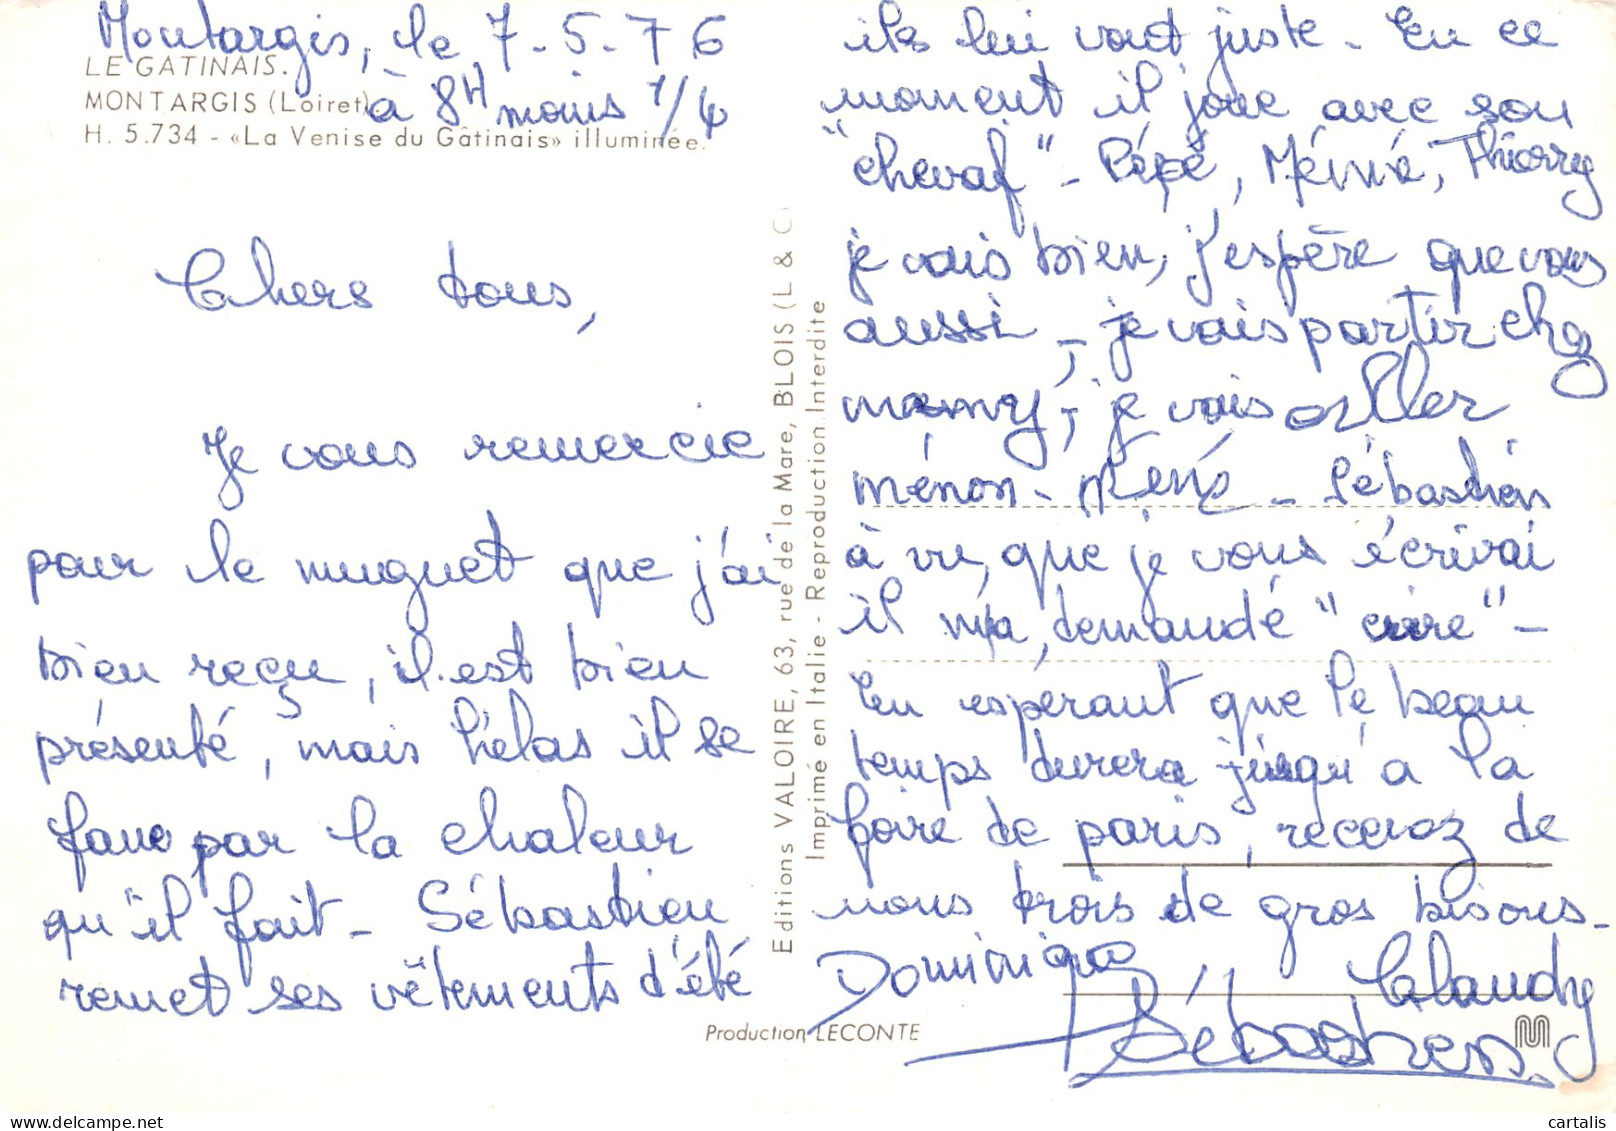 Montargis, le 7-5-76
LE GATINAIS.
MONTARGIS (Loiret)
à 8H moins 1/4
H. 5.734 - «La Venise du Gâtinais» illuminée.
Chers tous,
Je vous remercie
pour le muguet que j'ai
bien reçu, il est bien
présenté, mais hélas il se
fane par la chaleur
qu'il fait - Sébastien
remet ses vêtements d'été
Editions VALOIRE, 63, rue de la Mare, BLOIS (L & C)
Imprimé en Italie - Reproduction Interdite
ils lui vont juste - En ce
moment il joue avec son
"cheval" - Pépé, Mémé, Thierry
je vais bien, j'espère que vous
aussi - je vais partir chez
mamy, je vais aller
- Sébastien
à vu, que je vous écrivai
il m'a demandé "
En espérant que le beau
temps durera jusqu'à la
foire de paris, recevez de
nous trois de gros bisous -
Dominique
Claudy
Sébastien
Production LECONTE